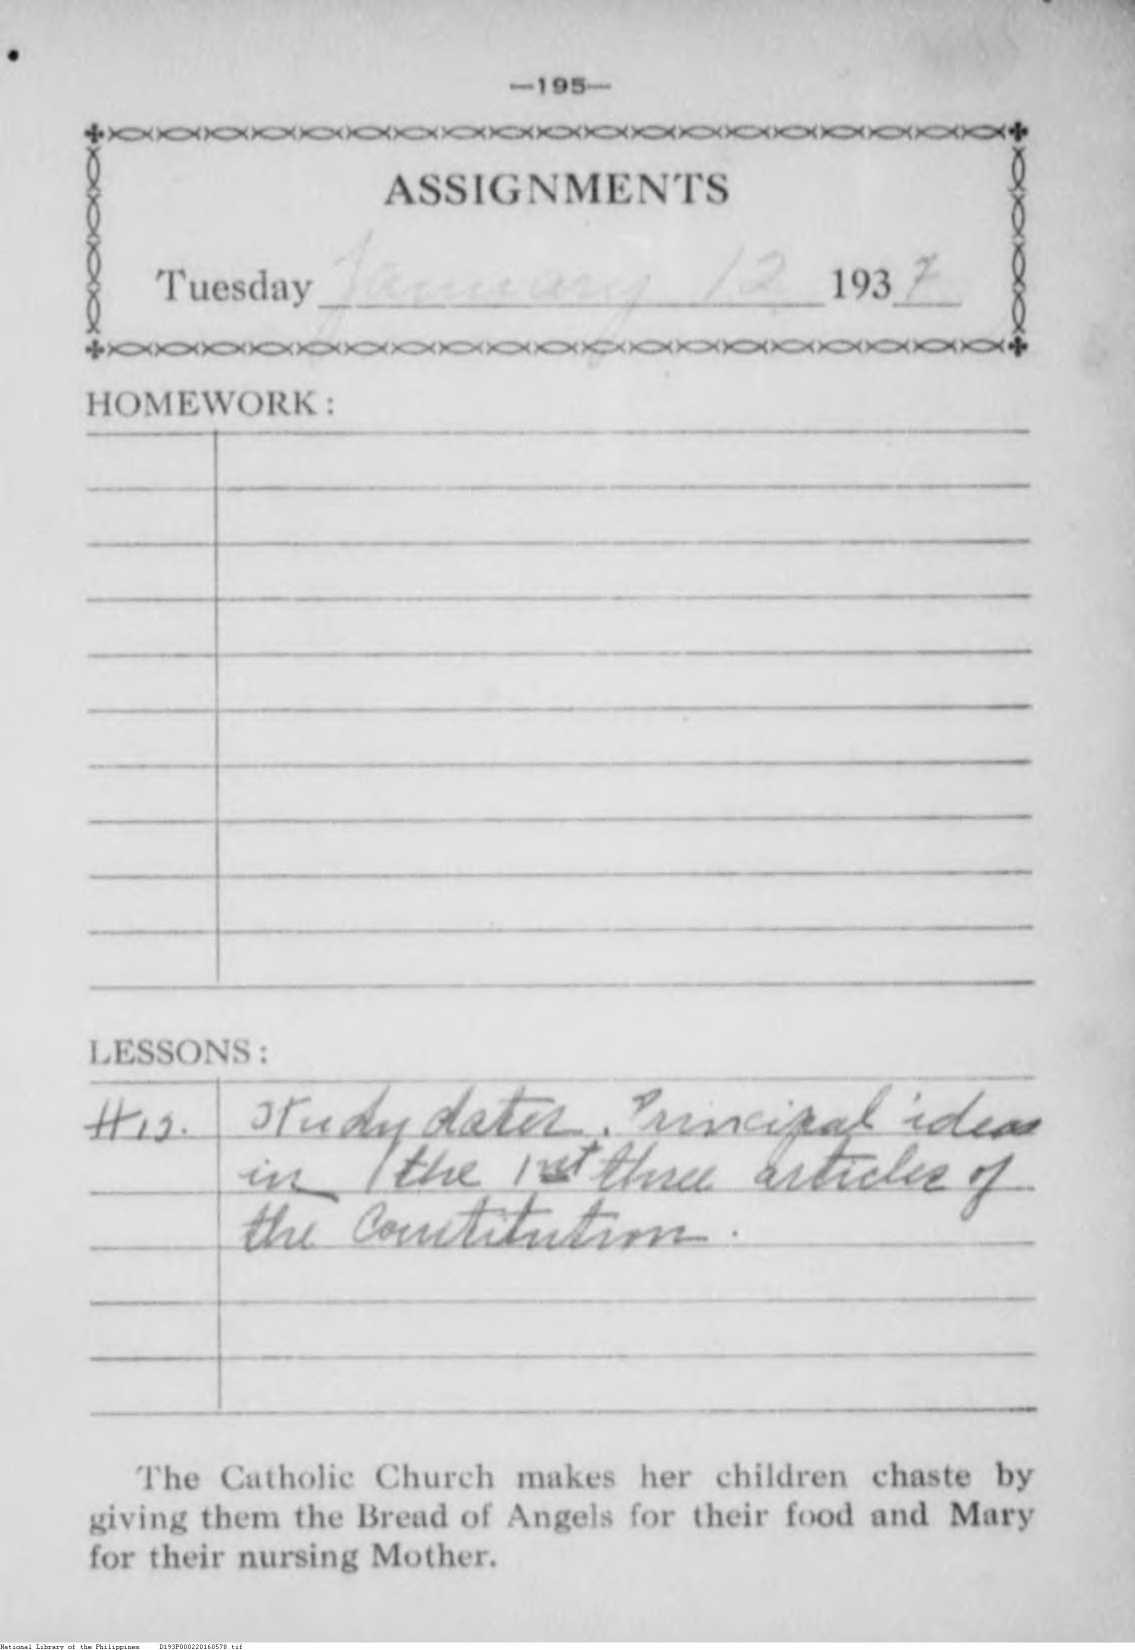 —195—
ASSIGNMENTS
Tuesday January 12 1937
HOMEWORK :
LESSONS :
His. Study dates. Principal ideas
in the 1st three articles of
the Constitution.
The Catholic Church makes her children chaste by
giving them the Bread of Angels for their food and Mary
for their nursing Mother.
National Library of the Philippines D193P000220160570 tif